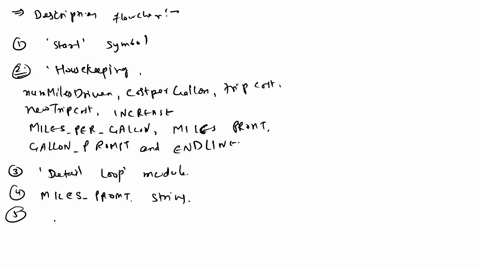 ⇒ Description flowchart:-
① 'Start' symbol
② 'Housekeeping,
numMilesDriven, CostperGallon, tripCost,
newTripCost, INCREASE
MILES_PER_GALLON, MILES PROMT,
GALLON_PROMPT and ENDLINE.
③ 'Detail Loop' module.
④ MILES_PROMT. String.
⑤ .